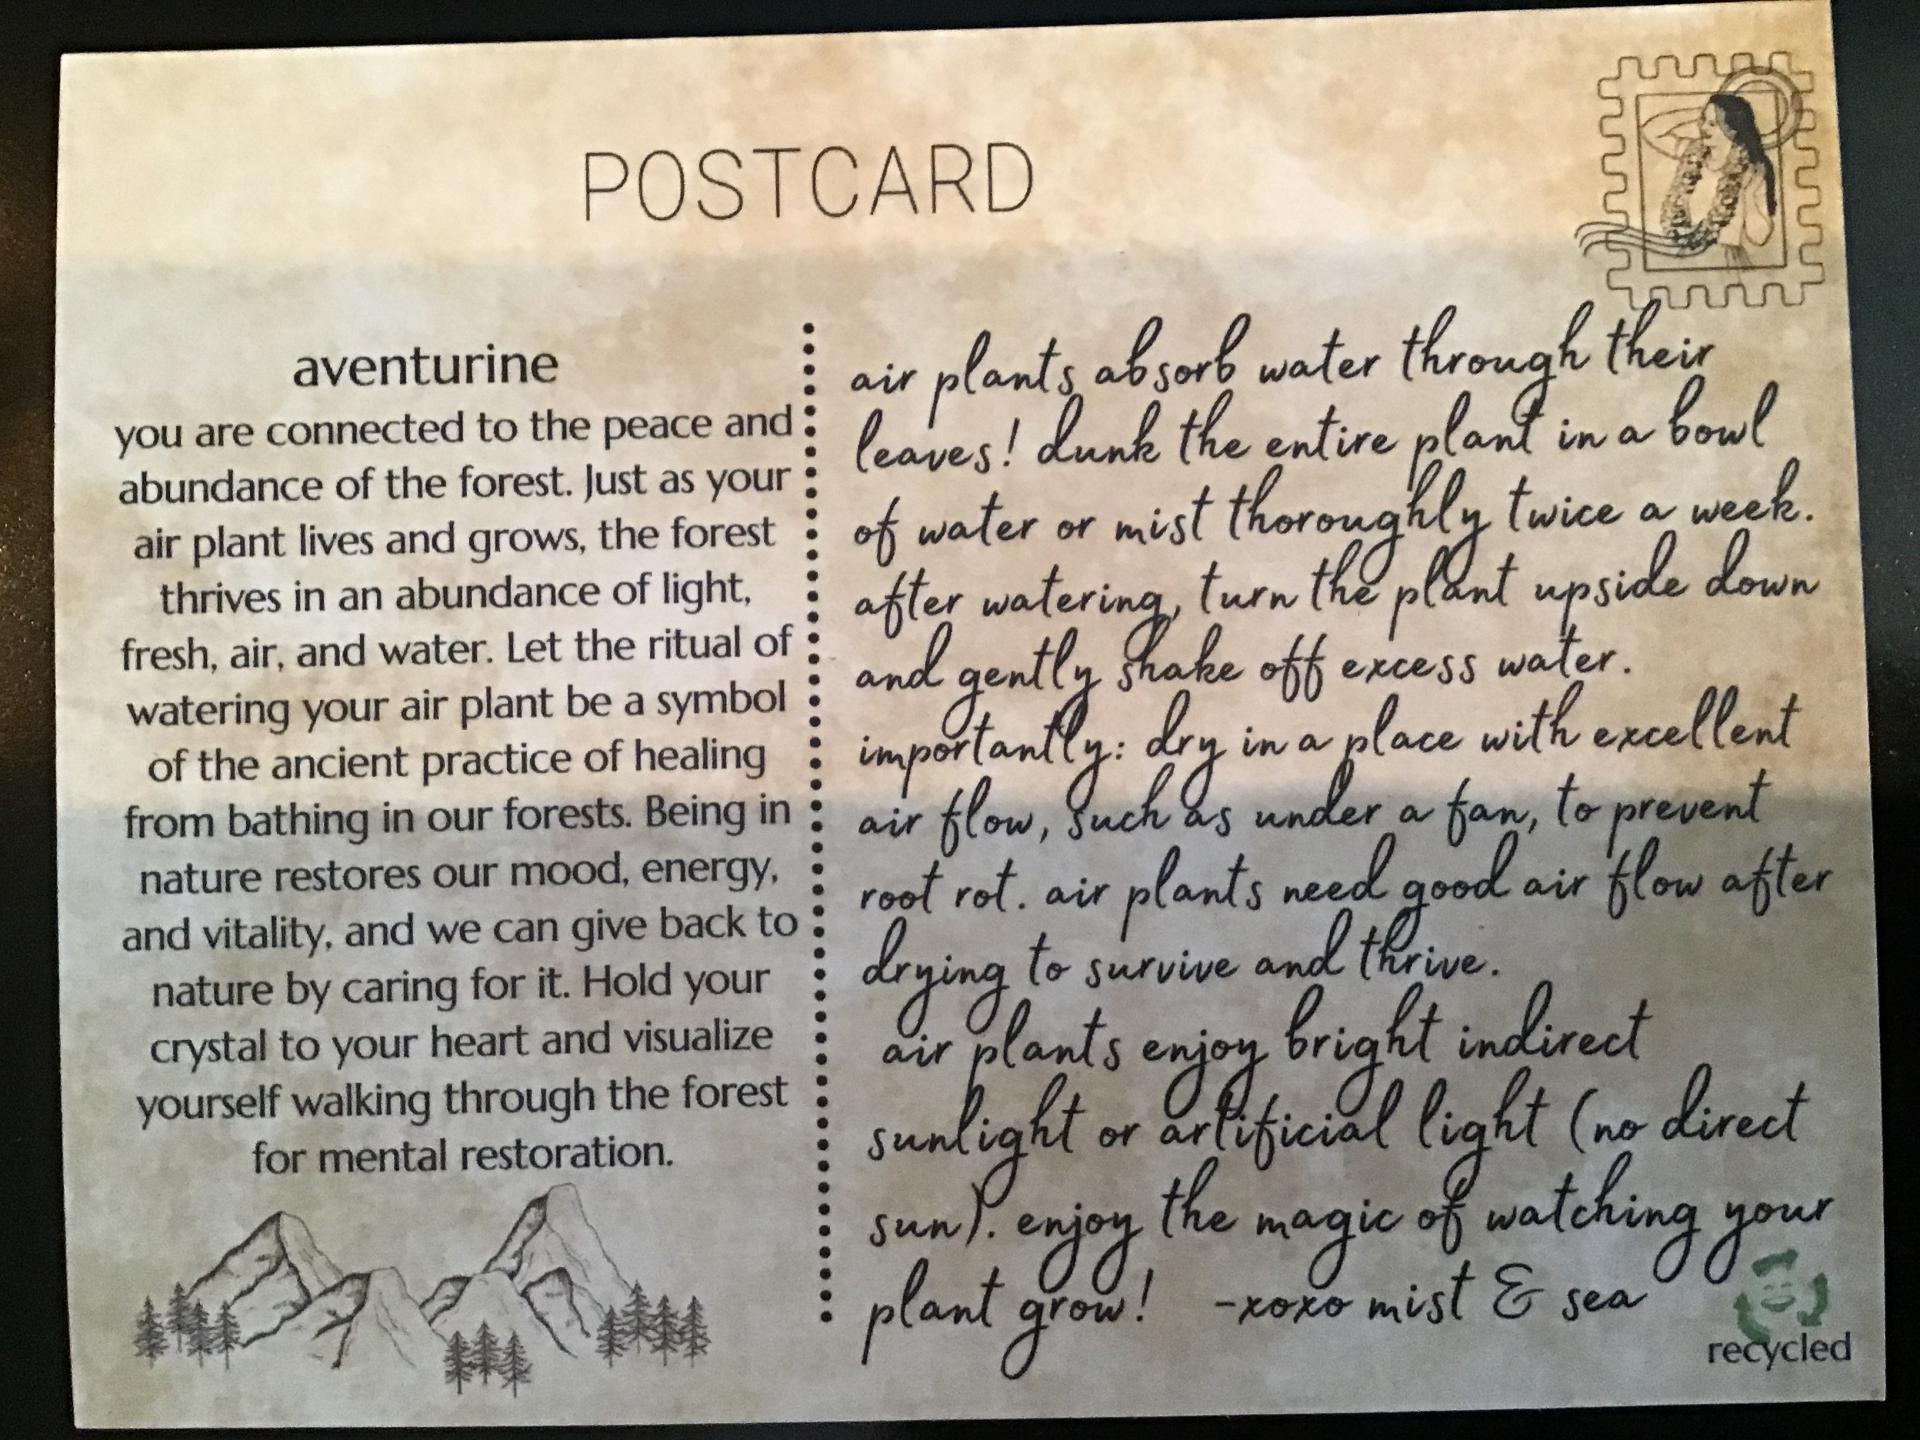 POSTCARD
aventurine
you are connected to the peace and
abundance of the forest. Just as your
air plant lives and grows, the forest
thrives in an abundance of light,
fresh, air, and water. Let the ritual of
watering your air plant be a symbol
of the ancient practice of healing
from bathing in our forests. Being in
nature restores our mood, energy,
and vitality, and we can give back to
nature by caring for it. Hold your
crystal to your heart and visualize
yourself walking through the forest
for mental restoration.
air plants absorb water through their
leaves! dunk the entire plant in a bowl
of water or mist thoroughly twice a week.
after watering, turn the plant upside down
and gently shake off excess water.
importantly: dry in a place with excellent
air flow, such as under a fan, to prevent
root rot. air plants need good air flow after
drying to survive and thrive.
air plants enjoy bright indirect
sunlight or artificial light (no direct
sun). enjoy the magic of watching your
plant grow! -xoxo mist & sea
recycled